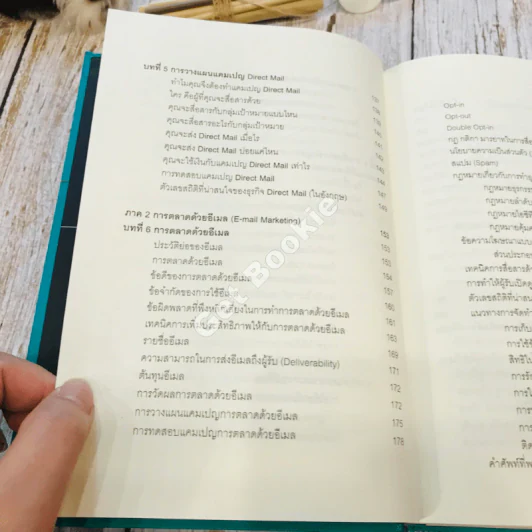 บทที่ 5 การวางแผนแคมเปญ Direct Mail
ทำไมคุณจึงต้องทำแคมเปญ Direct Mail
ใคร คือผู้ที่คุณจะสื่อสารด้วย
คุณจะสื่อสารกับกลุ่มเป้าหมายแบบไหน
คุณจะสื่อสารอะไรกับกลุ่มเป้าหมาย
คุณจะส่ง Direct Mail เมื่อไร
คุณจะส่ง Direct Mail บ่อยแค่ไหน
คุณจะใช้เงินกับแคมเปญ Direct Mail เท่าไร
การทดสอบแคมเปญ Direct Mail
ตัวเลขสถิติที่น่าสนใจของธุรกิจ Direct Mail (ในอังกฤษ)
ภาค 2 การตลาดด้วยอีเมล (E-mail Marketing)
บทที่ 6 การตลาดด้วยอีเมล
ประวัติย่อของอีเมล
การตลาดด้วยอีเมล
ข้อดีของการตลาดด้วยอีเมล
ข้อจำกัดของการใช้อีเมล
ข้อผิดพลาดที่พึงหลีกเลี่ยงในการทำการตลาดด้วยอีเมล 160
เทคนิคการเพิ่มประสิทธิภาพให้กับการตลาดด้วยอีเมล 161
รายชื่ออีเมล 163
ความสามารถในการส่งอีเมลถึงผู้รับ (Deliverability) 169
ต้นทุนอีเมล 171
การวัดผลการตลาดด้วยอีเมล 172
การวางแผนแคมเปญการตลาดด้วยอีเมล 175
การทดสอบแคมเปญการตลาดด้วยอีเมล 178
Opt-in
Opt-out
Double Opt-in
กฎ กติกา มารยาทในการสื่อ
นโยบายความเป็นส่วนตัว
สแปม (Spam)
กฎหมายเกี่ยวกับการทำธุ
กฎหมายธุรกร
กฎหมายลำดับ
กฎหมายไอซีที
กฎหมายคุ้มค
ข้อความโฆษณาแบบ
ส่วนประกอ
เทคนิคการสื่อสารด้
การทำให้ผู้รับเปิดดู
ตัวเลขสถิติที่น่าสน
แนวทางการจัดทำ
การเก็บ
การใช้ข้
สิทธิใน
การรั
การโ
การ
กา
ติด
คำศัพท์ที่พ
Get Bookie